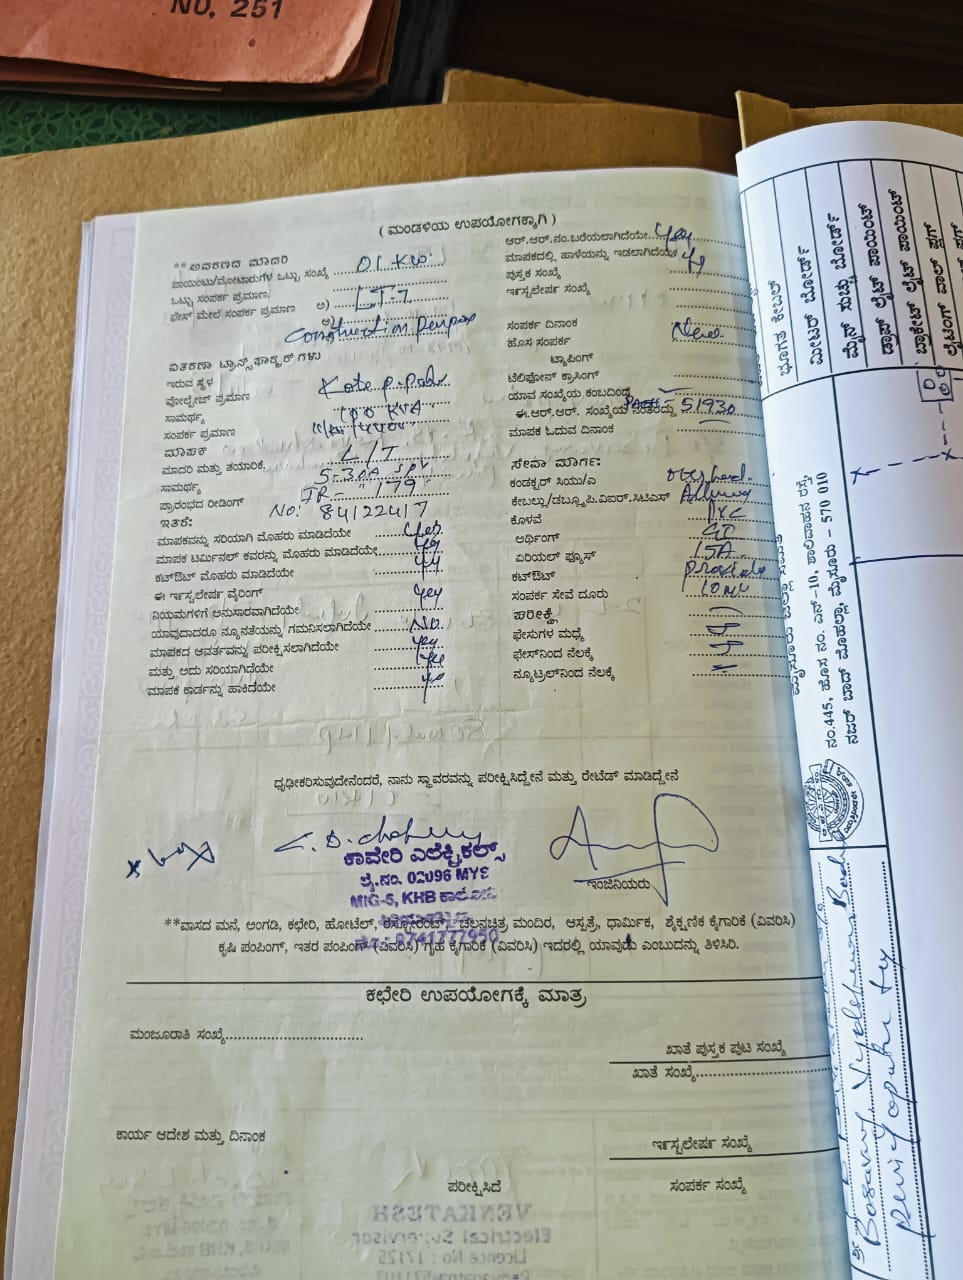 NO. 251
( ಮಂಡಳಿಯ ಉಪಯೋಗಕ್ಕಾಗಿ )
**ಆವರಣದ ಮಾದರಿ
ಪಾಯಿಂಟು/ಮೋಟಾರುಗಳ ಒಟ್ಟು ಸಂಖ್ಯೆ 01 KW
ಒಟ್ಟು ಸಂಪರ್ಕ ಪ್ರಮಾಣ.
ಫೇಸ್ ಮೇಲೆ ಸಂಪರ್ಕ ಪ್ರಮಾಣ ಅ) LT-7
ಆ)
Construction
ವಿತರಣಾ ಟ್ರಾನ್ಸ್‌ಫಾರ್ಮರ್‌ಗಳು
ಇರುವ ಸ್ಥಳ
ವೋಲ್ಟೇಜ್ ಪ್ರಮಾಣ Kote
ಸಾಮರ್ಥ್ಯ 100 KVA
ಸಂಪರ್ಕ ಪ್ರಮಾಣ
ಮಾಪಕ
ಮಾದರಿ ಮತ್ತು ತಯಾರಿಕೆ. L/T
ಸಾಮರ್ಥ್ಯ 5-30A
ಪ್ರಾರಂಭದ ರೀಡಿಂಗ್ IR - 179
ಇತರೆ: No: 84122417
ಮಾಪಕವನ್ನು ಸರಿಯಾಗಿ ಮೊಹರು ಮಾಡಿದೆಯೇ Yes
ಮಾಪಕ ಟರ್ಮಿನಲ್ ಕವರನ್ನು ಮೊಹರು ಮಾಡಿದೆಯೇ Yes
ಕಟ್‌ಔಟ್ ಮೊಹರು ಮಾಡಿದೆಯೇ Yes
ಈ ಇನ್ಸ್ಟಲೇಷನ್ ವೈರಿಂಗ್
ನಿಯಮಗಳಿಗೆ ಅನುಸಾರವಾಗಿದೆಯೇ Yes
ಯಾವುದಾದರೂ ನ್ಯೂನತೆಯನ್ನು ಗಮನಿಸಲಾಗಿದೆಯೇ No.
ಮಾಪಕದ ಆವರ್ತವನ್ನು ಪರೀಕ್ಷಿಸಲಾಗಿದೆಯೇ Yes
ಮತ್ತು ಅದು ಸರಿಯಾಗಿದೆಯೇ Yes
ಮಾಪಕ ಕಾರ್ಡನ್ನು ಹಾಕಿದೆಯೇ Yes
ಆರ್.ಆರ್.ನಂ.ಬರೆಯಲಾಗಿದೆಯೇ Yes
ಮಾಪಕದಲ್ಲಿ ಹಾಳೆಯನ್ನು ಇಡಲಾಗಿದೆಯೇ Yes
ಪುಸ್ತಕ ಸಂಖ್ಯೆ
ಇನ್ಸ್ಟಲೇಷನ್ ಸಂಖ್ಯೆ
ಸಂಪರ್ಕ ದಿನಾಂಕ
ಹೊಸ ಸಂಪರ್ಕ New
ಟ್ಯಾಪಿಂಗ್
ಟೆಲಿಫೋನ್ ಕ್ರಾಸಿಂಗ್
ಯಾವ ಸಂಖ್ಯೆಯ ಕಂಬದಿಂದ
ಈ.ಆರ್.ಆರ್. ಸಂಖ್ಯೆಯ ನಂತರದ್ದು 51930
ಮಾಪಕ ಓದುವ ದಿನಾಂಕ
ಸೇವಾ ಮಾರ್ಗ:
ಕಂಡಕ್ಟರ್ ಸಿಯು/ಎ
ಕೇಬಲ್ಲು/ಡಬ್ಲ್ಯೂ.ಪಿ.ಐಆರ್.ಸಿಟಿಎಸ್
ಕೊಳವೆ PVC
ಅರ್ಥಿಂಗ್ GI
ಏರಿಯಲ್ ಫ್ಯೂಸ್ 15A
ಕಟ್‌ಔಟ್ Provide
ಸಂಪರ್ಕ ಸೇವೆ ದೂರು
ಪರೀಕ್ಷೆ
ಫೇಸುಗಳ ಮಧ್ಯೆ
ಫೇಸ್‌ನಿಂದ ನೆಲಕ್ಕೆ
ನ್ಯೂಟ್ರಲ್‌ನಿಂದ ನೆಲಕ್ಕೆ
ಧೃಢೀಕರಿಸುವುದೇನೆಂದರೆ, ನಾನು ಸ್ಥಾವರವನ್ನು ಪರೀಕ್ಷಿಸಿದ್ದೇನೆ ಮತ್ತು ರೇಟೆಡ್ ಮಾಡಿದ್ದೇನೆ
ಕಾವೇರಿ ಎಲೆಕ್ಟ್ರಿಕಲ್ಸ್
ಲೈ.ನಂ. 02096 MYS
MIG-6, KHB ಕಾಲೋನಿ
9741777950
ಇಂಜಿನಿಯರು
**ವಾಸದ ಮನೆ, ಅಂಗಡಿ, ಕಛೇರಿ, ಹೋಟೆಲ್, ರೆಸ್ಟೋರೆಂಟ್, ಚಲನಚಿತ್ರ ಮಂದಿರ, ಆಸ್ಪತ್ರೆ, ಧಾರ್ಮಿಕ, ಶೈಕ್ಷಣಿಕ ಕೈಗಾರಿಕೆ (ವಿವರಿಸಿ)
ಕೃಷಿ ಪಂಪಿಂಗ್, ಇತರ ಪಂಪಿಂಗ್ (ವಿವರಿಸಿ) ಗೃಹ ಕೈಗಾರಿಕೆ (ವಿವರಿಸಿ) ಇದರಲ್ಲಿ ಯಾವುದು ಎಂಬುದನ್ನು ತಿಳಿಸಿರಿ.
ಕಛೇರಿ ಉಪಯೋಗಕ್ಕೆ ಮಾತ್ರ
ಮಂಜೂರಾತಿ ಸಂಖ್ಯೆ
ಖಾತೆ ಪುಸ್ತಕ ಪುಟ ಸಂಖ್ಯೆ
ಖಾತೆ ಸಂಖ್ಯೆ
ಕಾರ್ಯ ಆದೇಶ ಮತ್ತು ದಿನಾಂಕ
ಇನ್ಸ್ಟಲೇಷನ್ ಸಂಖ್ಯೆ
ಪರೀಕ್ಷಿಸಿದೆ
ಸಂಪರ್ಕ ಸಂಖ್ಯೆ
VENKATESH
Electrical Supervisor
Licence No : 17125
ಭೂಗತ ಕೇಬಲ್
ಮೀಟರ್ ಬೋರ್ಡ್
ಮೈನ್ ಸುಚ್ಚು ಬೋರ್ಡ್
ಡ್ರಾಪ್ ಲೈಟ್ ಪಾಯಿಂಟ್
ಬ್ರಾಕೇಟ್ ಲೈಟ್ ಪಾಯಿಂಟ್
ಲೈಟಿಂಗ್ ವಾಲ್ ಪ್ಲಗ್
ನಂ.445, ಹೊಸ ನಂ. ಎನ್-10, ಶಾಲಿವಾಹನ ರಸ್ತೆ,
ನಜರ್ ಬಾದ್ ಮೊಹಲ್ಲಾ, ಮೈಸೂರು - 570 010